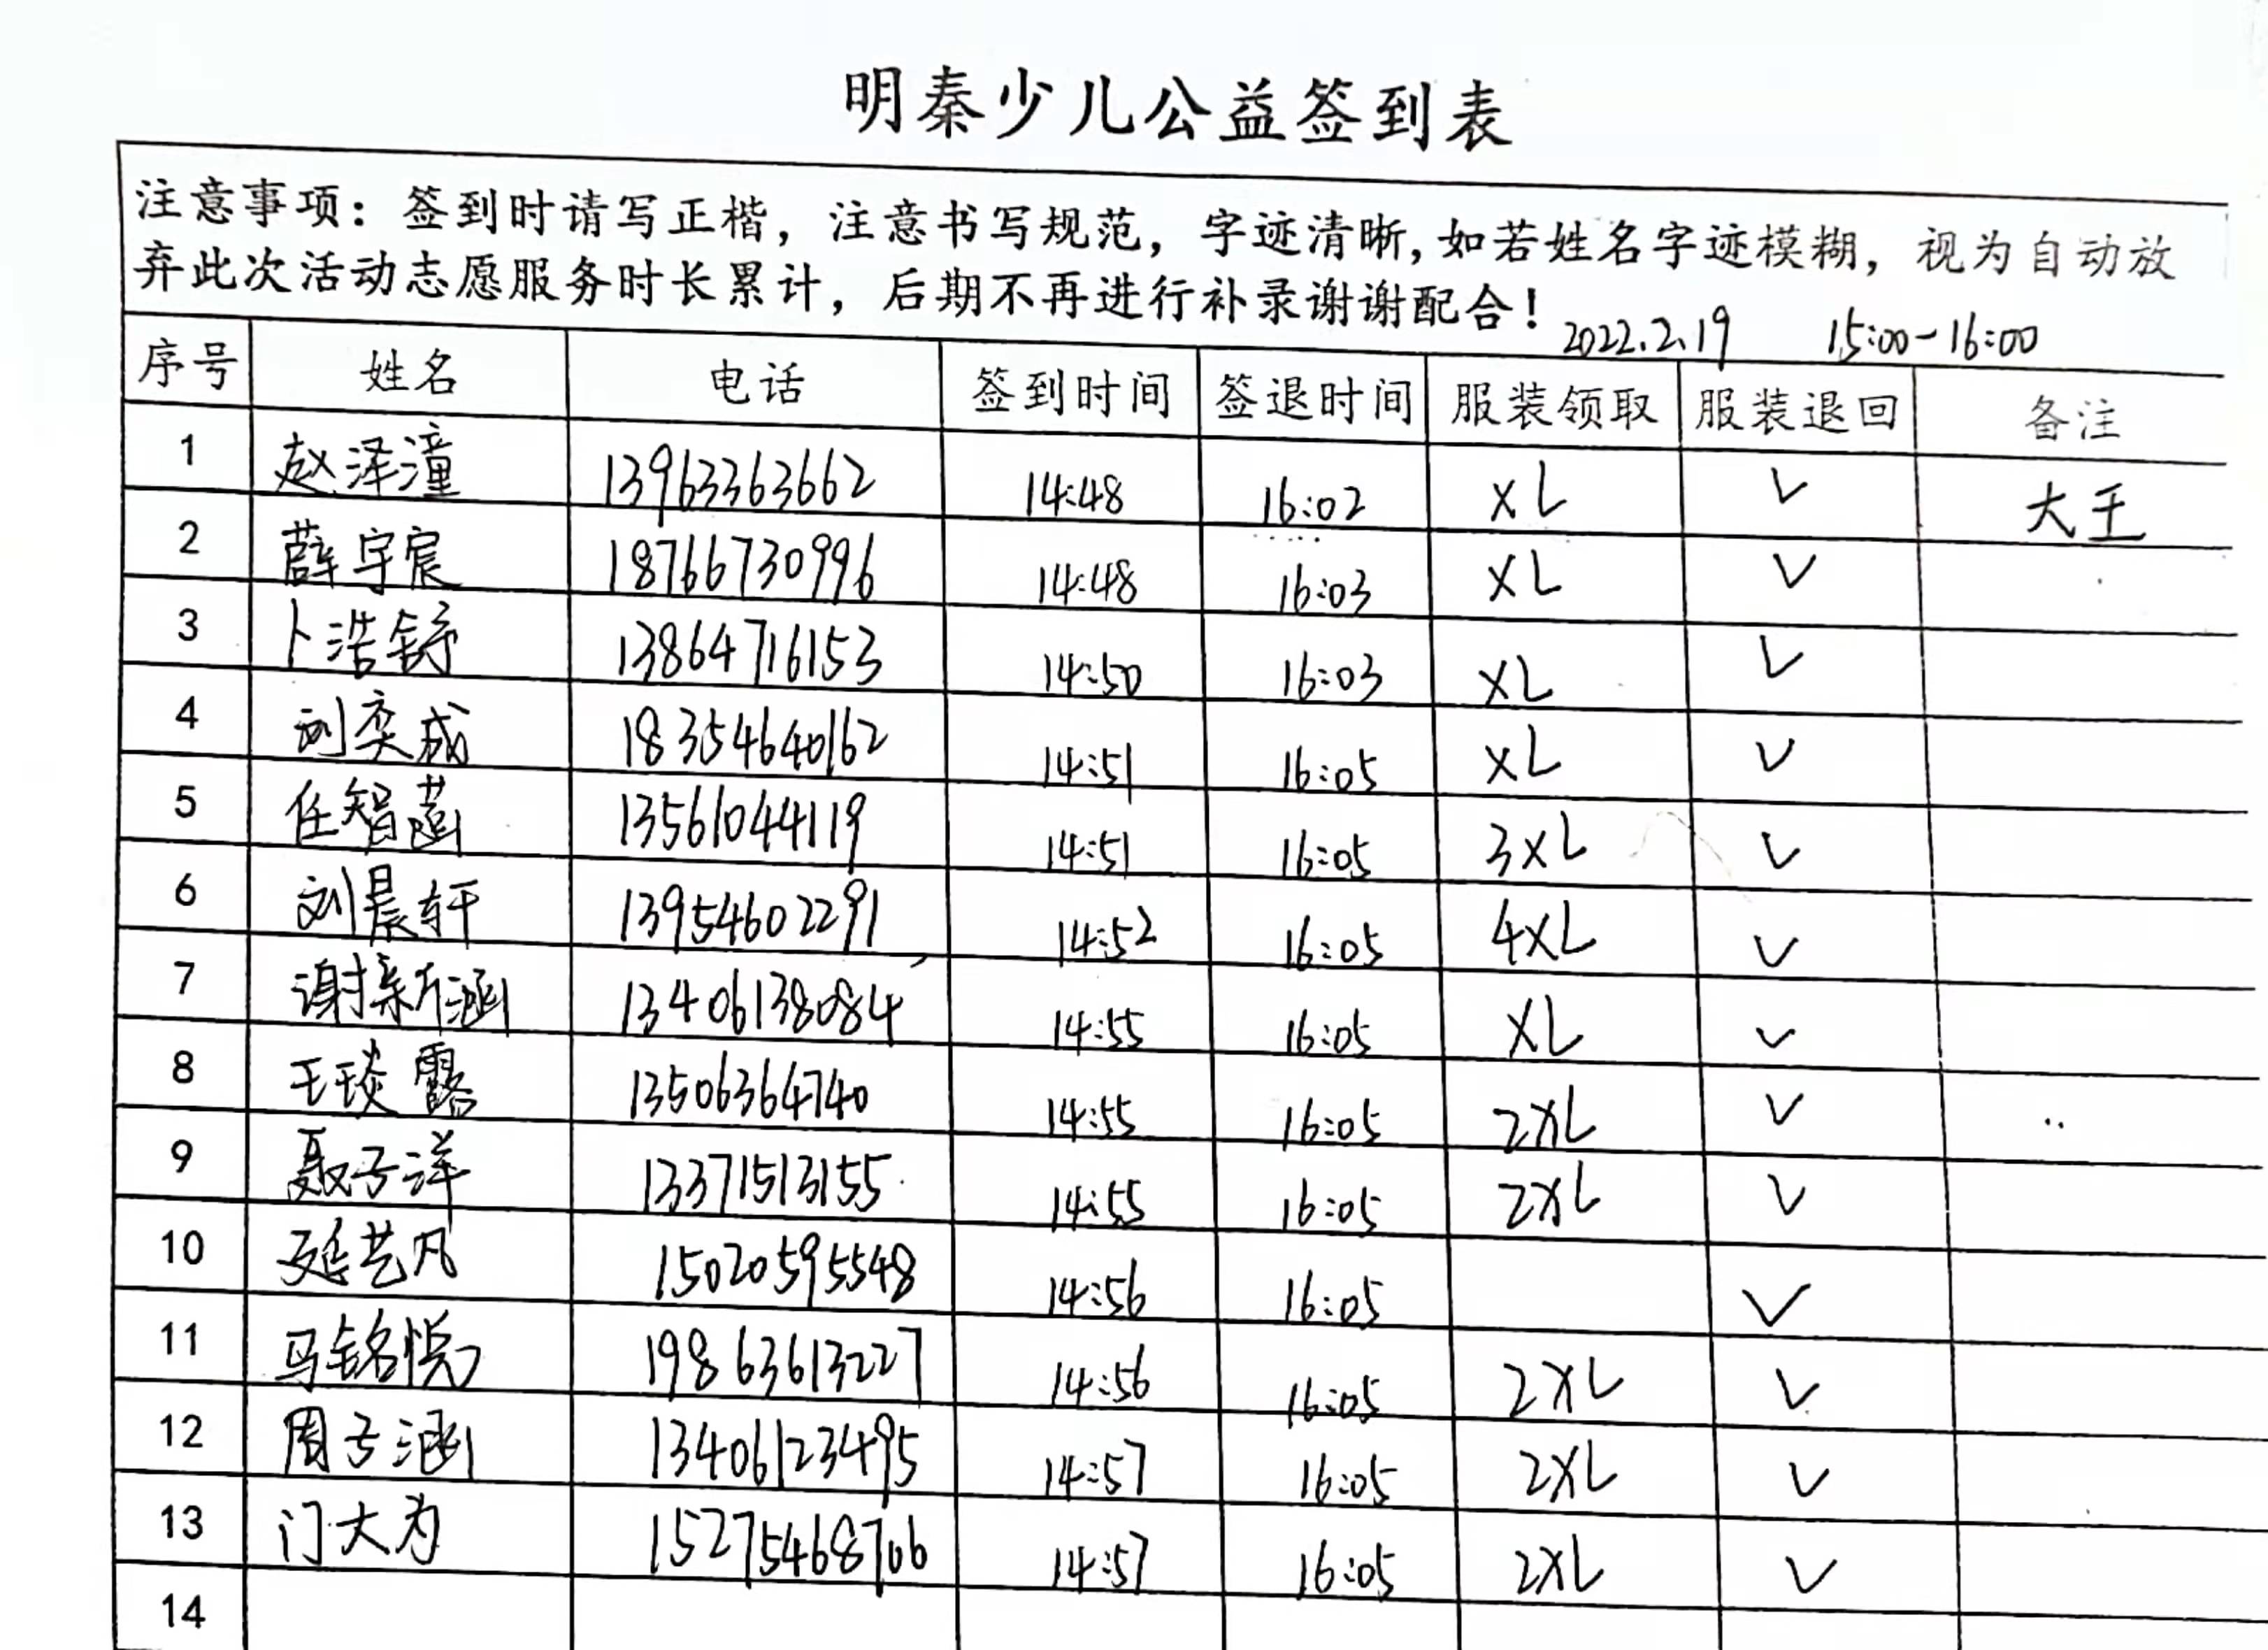 明秦少儿公益签到表
注意事项：签到时请写正楷，注意书写规范，字迹清晰，如若姓名字迹模糊，视为自动放
弃此次活动志愿服务时长累计，后期不再进行补录谢谢配合！
2022.2.19 15:00-16:00
序号 姓名 电话 签到时间 签退时间 服装领取 服装退回 备注
1 赵泽潼 13963363662 14:48 16:02 XL ✓ 大王
2 薛宇宸 18766730996 14:48 16:03 XL ✓
3 卜浩铮 13864716153 14:50 16:03 XL ✓
4 刘奕成 18354640162 14:51 16:05 XL ✓
5 任智菡 13561044119 14:51 16:05 3XL ✓
6 刘晨轩 13954602291 14:52 16:05 4XL ✓
7 谢新涵 13406138084 14:55 16:05 XL ✓
8 王琰露 13506364740 14:55 16:05 2XL ✓
9 聂子洋 13371513155 14:55 16:05 2XL ✓
10 延艺凡 15020595548 14:56 16:05 ✓
11 马铭悦 19863613227 14:56 16:05 2XL ✓
12 周子涵 13406123495 14:57 16:05 2XL ✓
13 门大为 15275468706 14:57 16:05 2XL ✓
14